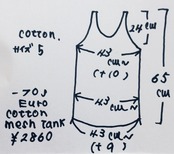 cotton.
サイズ 5
24
cm
43
cm~
(+10)
65
cm
43
cm~
-70s
Euro
cotton
mesh tank
¥2860
43
cm~
(+9)